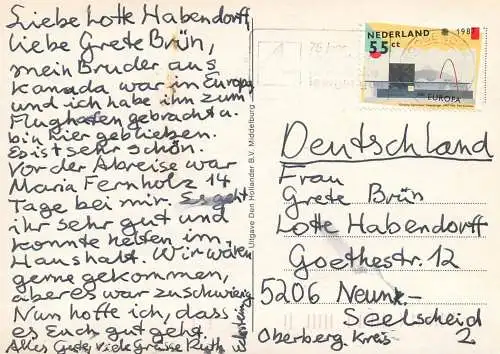 Liebe Lotte Habendorff,
liebe Grete Brün,
mein Bruder aus
Kanada war in Europa
und ich habe ihn zum
Flughafen gebracht u.
bin hier geblieben.
Es ist sehr schön.
Vor der Abreise war
Maria Fernholz 14
Tage bei mir. Es geht
ihr sehr gut und
konnte helfen im
Haushalt. Wir wären
gerne gekommen,
aber es war zu schwierig
Nun hoffe ich, dass
es Euch gut geht.
Alles Gute, viele Grüsse Ruth
Uitgave Den Hollander B.V. Middelburg
NEDERLAND 1987
55 ct
EUROPA
Deutschland
Frau
Grete Brün
Lotte Habendorff
Goethestr. 12
5206 Neunk-
Seelscheid
Oberberg. Kreis 2